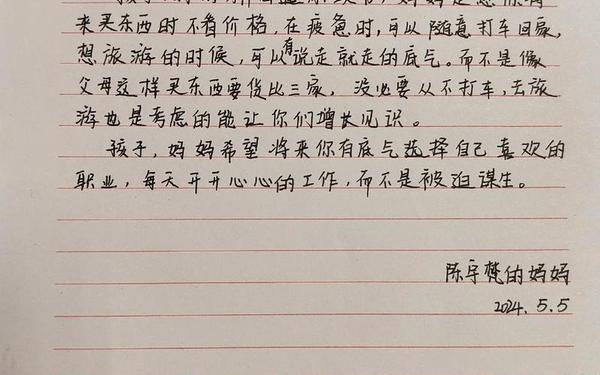 来买东西时不看价格,在疲惫时,可以随意打车回家,
想旅游的时候,可以有说走就走的底气。而不是像
父母这样买东西要货比三家,没必要从不打车,去旅
游也是考虑的能让你们增长见识。
孩子,妈妈希望将来你有底气选择自己喜欢的
职业,每天开开心心的工作,而不是被迫谋生。
陈宇梵的妈妈
2024.5.5